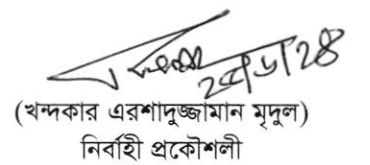 (খন্দকার এরশাদুজ্জামান মৃদুল)
নির্বাহী প্রকৌশলী